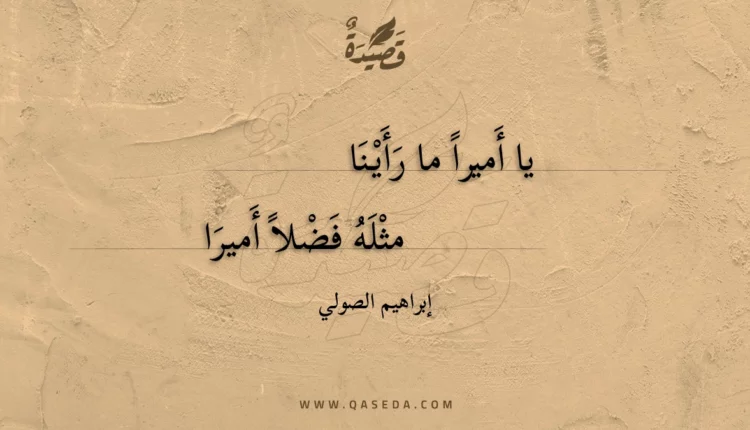 قَصِيْدَةٌ
يا أَميراً ما رَأَيْنَا
مثْلَهُ فَضْلاً أَميرَا
إبراهيم الصولي
WWW.QASEDA.COM